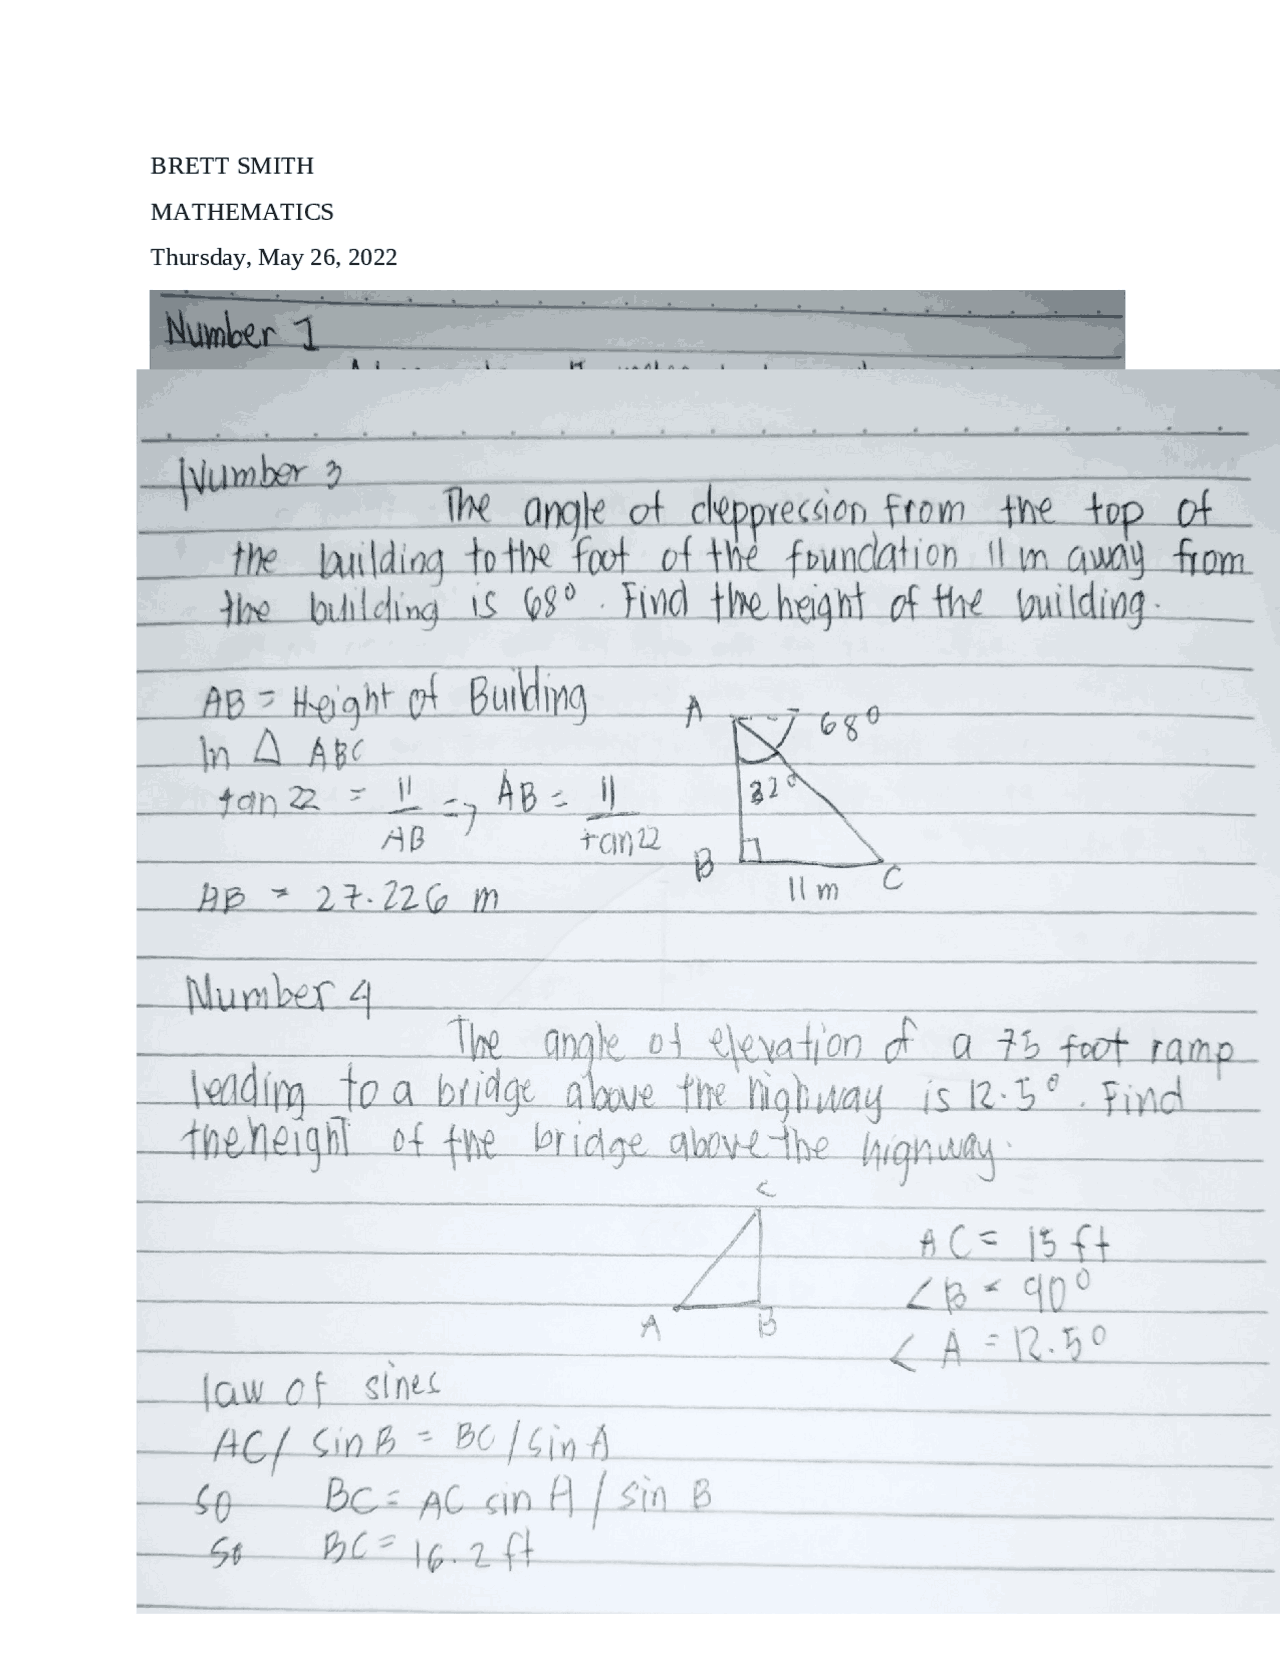 BRETT SMITH
MATHEMATICS
Thursday, May 26, 2022
Number 1
Number 3
The angle of deppression from the top of
the building to the foot of the foundation 11 m away from
the building is 68°. Find the height of the building.
AB = Height of Building
In △ ABC
tan 22 = 11/AB => AB = 11/tan 22
AB = 27.226 m
A
68°
32°
B
11 m
C
Number 4
The angle of elevation of a 75 foot ramp
leading to a bridge above the highway is 12.5°. Find
the height of the bridge above the highway.
C
A
B
AC = 15 ft
∠B = 90°
∠A = 12.5°
law of sines
AC/ sin B = BC / sin A
so BC = AC sin A / sin B
so BC = 16.2 ft